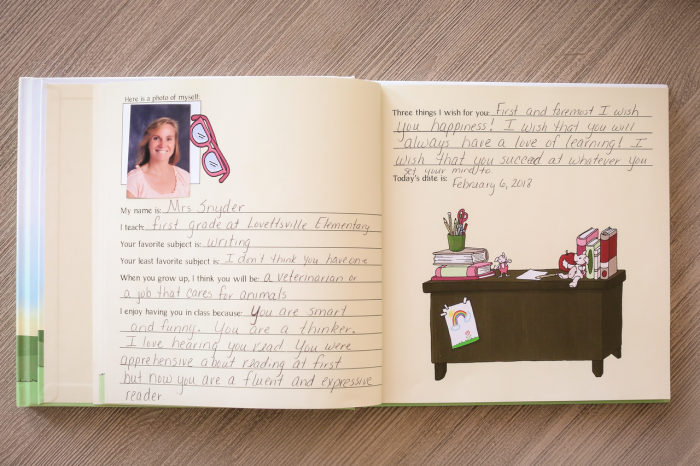 Here is a photo of myself:
My name is: Mrs Snyder
I teach: first grade at Lovettsville Elementary
Your favorite subject is: writing
Your least favorite subject is: I don't think you have one
When you grow up, I think you will be: a veterinarian or
a job that cares for animals
I enjoy having you in class because: You are smart
and funny. You are a thinker.
I love hearing you read. You were
apprehensive about reading at first
but now you are a fluent and expressive
reader.
Three things I wish for you: First and foremost I wish
you happiness! I wish that you will
always have a love of learning! I
wish that you succeed at whatever you
set your mind to.
Today's date is: February 6, 2018